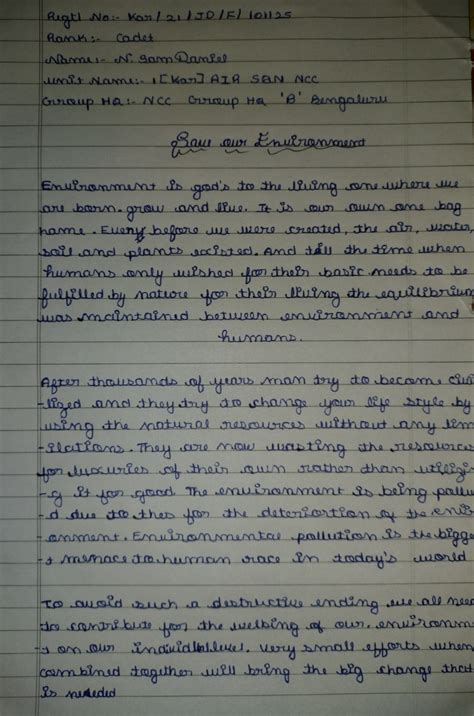 Regtl No:- Kar/21/JD/F/101125
Rank:- Cadet
Name:- N. Sam Daniel
Unit Name:- 1[Kar] AIR SQN NCC
Group HQ:- NCC Group HQ 'B' Bengaluru
Save our Environment
Environment is god's to the living one where we
are born. grow and live. It is our own one bag
name. Every before we were created, the air, water,
soil and plants existed. And till the time when
humans only wished for their basic needs to be
fulfilled by nature for their living the equilibrium
was maintained between environment and
humans.
After thousands of years man try to become civi
-lized and they try to change your life style by
using the natural resources without any lim
-itations. They are now wasting the resources
for luxuries of their own rather than utilizin
-g it for good. The environment is being pollu
-d due to this for the deteriortion of the envi
-onment. Environmental pollution is the bigge
-t menace to human race in today's world
To avoid such a destructive ending we all need
to contribute for the welbing of our. environm
t on our individual level. very small efforts when
combined together will bring the big change that
is needed